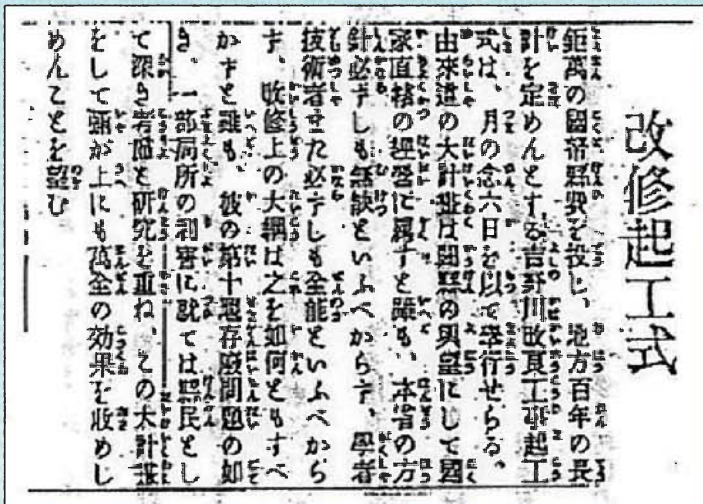 改修起工式
鉅萬の國帑縣費を投し、地方百年の長
計を定めんとする吉野川改良工事起工
式は、月の念六日を以て擧行せらる。
由來這の大計畫は闔縣の輿望にして國
家直轄の經營に屬すと雖も、本省の方
針必ずしも無缺といふべからず、學者
技術者また必ずしも全能といふべから
ず、改修上の大綱は之を如何ともすべ
からずと雖も、彼の第十堰存廢問題の如
き、一部局所の利害に就ては縣民とし
て深き考慮と研究を重ね、この大計畫
をして更が上にも萬全の効果を收めし
めんことを望む